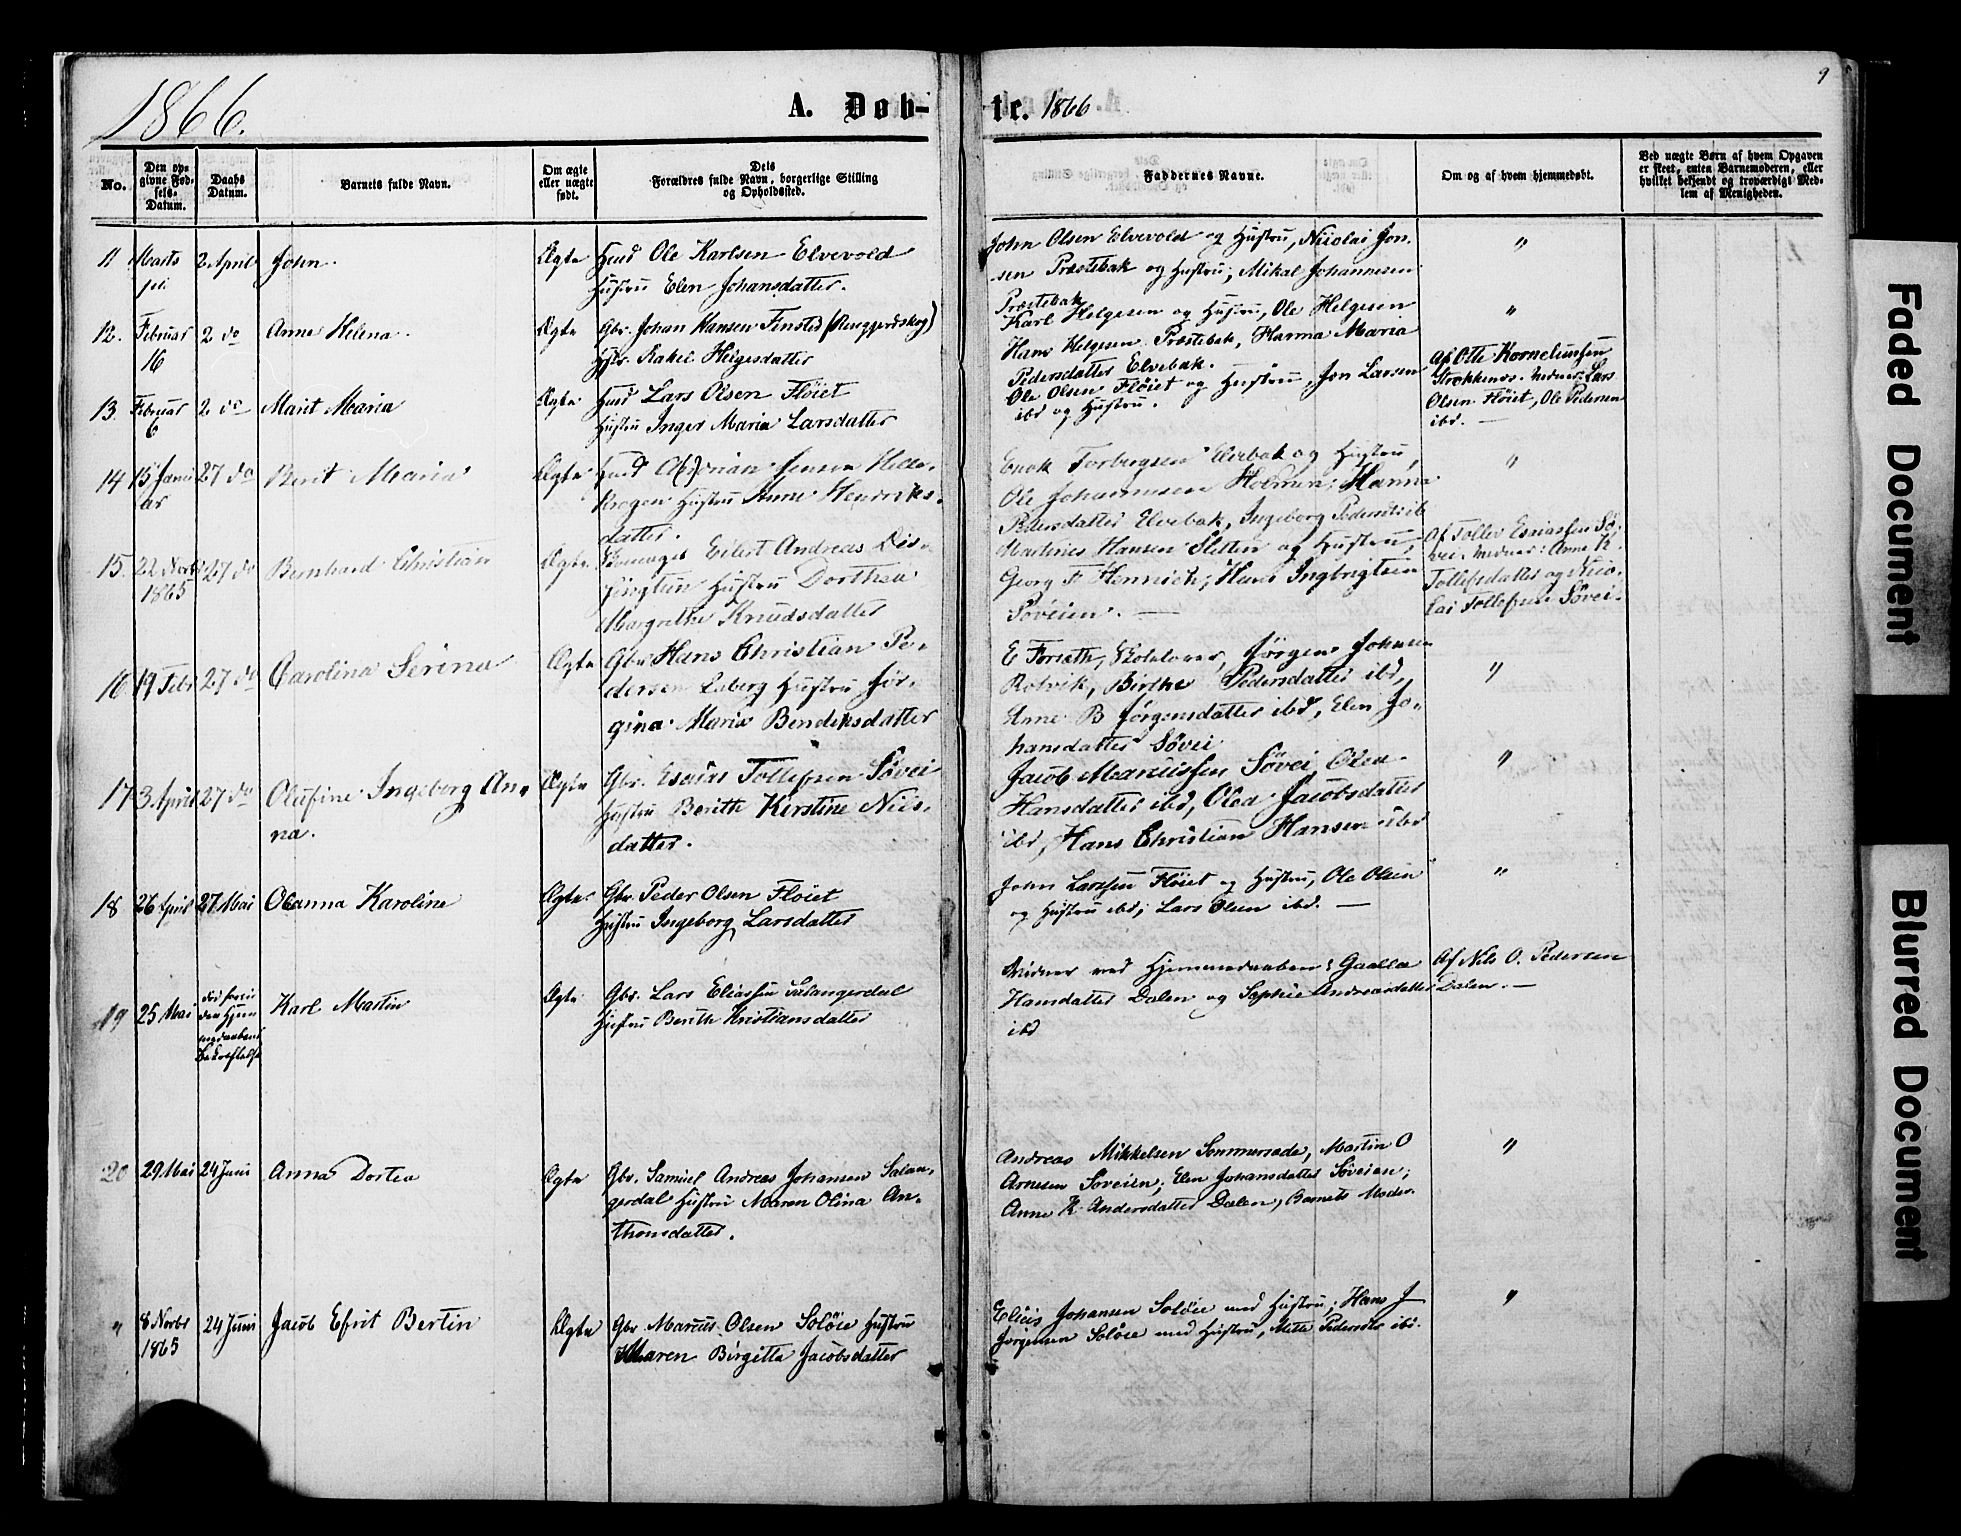 1866.
A. Døb-
te. 1866
9
No.
Den op-
givne Fød-
sels-
Datum.
Daabs
Datum.
Barnets fulde Navn.
Om ægte
eller uægte
født.
Dets
Forældres fulde Navn, borgerlige Stilling
og Opholdssted.
Faddernes Navne.
Om og af hvem hjemmedøbt.
Ved uægte Børn af hvem Opgaven
er skeet, enten Barnemoderen, eller
hvilket bekjendt og troværdigt Med-
lem af Menigheden.
11 Marts 2 April John. Ægte Huusd Ole Karlsen Elvevold
Hustru Elen Johansdatter.
John Olsen Elvevold og Hustru, Nicolai Jon-
sen Præstebak og Hustru, Mikal Johannesen
Præstebak
"
12. Februar 2 do Anne Helena. Ægte Gbr. Johan Hansen Finsted
16
Hstr. Rakel Helgesdatter
Karl Helgesen og Hustru, Ole Helgesen
Hans Helgesen Præstebak, Hanna Maria
Pedersdatter Elvebak.
"
13. Februar 2 do Marit Maria Ægte Huusd Lars Olsen Fløiet
6
Hustru Inger Maria Larsdatter
Ole Olsen Fløiet og Hustru, Jon Larsen
ibd og Hustru.
Af Otte Korneliussen
Strokkenæs. Vidner: Lars
Olsen Fløiet, Ole Pedersen
ibd. —
14 15 Janu 27 do Berit Maria Ægte
ar
Krogen Hustru Anne Hendriks-
datter.
Enok Torbergsen Elvebak og Hustru,
Ole Johannesen Holmen; Hanna
Pedersdatter Elvebak, Ingeborg Pedersdtr ib
"
15. 22 Novbr 27 do Bernhard Christian Ægte
1865
Eilert Andreas Dis-
Hustru Dorthea
Margrethe Knudsdatter
Martines Hansen Sletten og Hustru,
Georg F. Hennich; Hans Ingbrigtsen
Søveien. —
Af Tollev Esaiassen Sø-
vei. Vidner: Anne K.
Tollefsdatter og Nico-
lai Tollefsen Søvei.
16 19 Febr 27 do Carolina Serina Ægte Gbr. Hans Christian Pe-
dersen Laberg Hustru Jør-
gina Maria Bendiksdatter
E Forseth, Skolelærer, Jørgen Johnsen
Rotvik, Birthe Pedersdatter ibd,
Anne B Jørgensdatter ibd, Elen Jo-
hansdatter Søvei
"
17 3 April 27 do Olufine Ingeborg An-
na.
Ægte Gbr. Esaias Tollefsen Søvei
Hustru Berith Kirstine Nils-
datter.
Jacob Marcussen Søvei, Olea
Hansdatter ibd, Olea Jacobsdatter
ibd, Hans Christian Hansen ibd
"
18 26 April 27 Mai Oleanna Karoline Ægte. Gbr. Peder Olsen Fløiet
Hustru Ingeborg Larsdatter
John Larssen Fløiet og Hustru, Ole Olsen
og Hustru ibd; Lars Olsen ibd. —
"
19 25 Mai Karl Martin Ægte Gbr. Lars Eliassen Salangerdal
Hustru Berith Kristiansdatter
Vidner ved Hjemmedaaben: Gaallca
Hansdatter Dalen og Sophie Andreasdatter
ibd
Af Nils O. Pedersen
Dalen. —
20 29 Mai 24 Juni Anna Dortea Ægte Gbr. Samuel Andreas Johansen Salan-
gerdal Hustru Maren Olina An-
thonsdatter.
Andreas Mikkelsen Sommersæde, Martin O
Arnesen Søveien; Elen Johansdatter Søveien;
Anne K. Andersdatter Dalen, Barnets Moder.
"
" 8 Novbr 24 Juni Jacob Efrit Bertin Ægte Gbr. Marcus Olsen Soløie Hustru
1865
Maren Birgitta Jacobsdatter
Elias Johansen Soløie med Hustru; Hans J
Jørgensen Soløie med Hustru, Mette Pedersdtr ibd.
"
Faded Document
Blurred Document